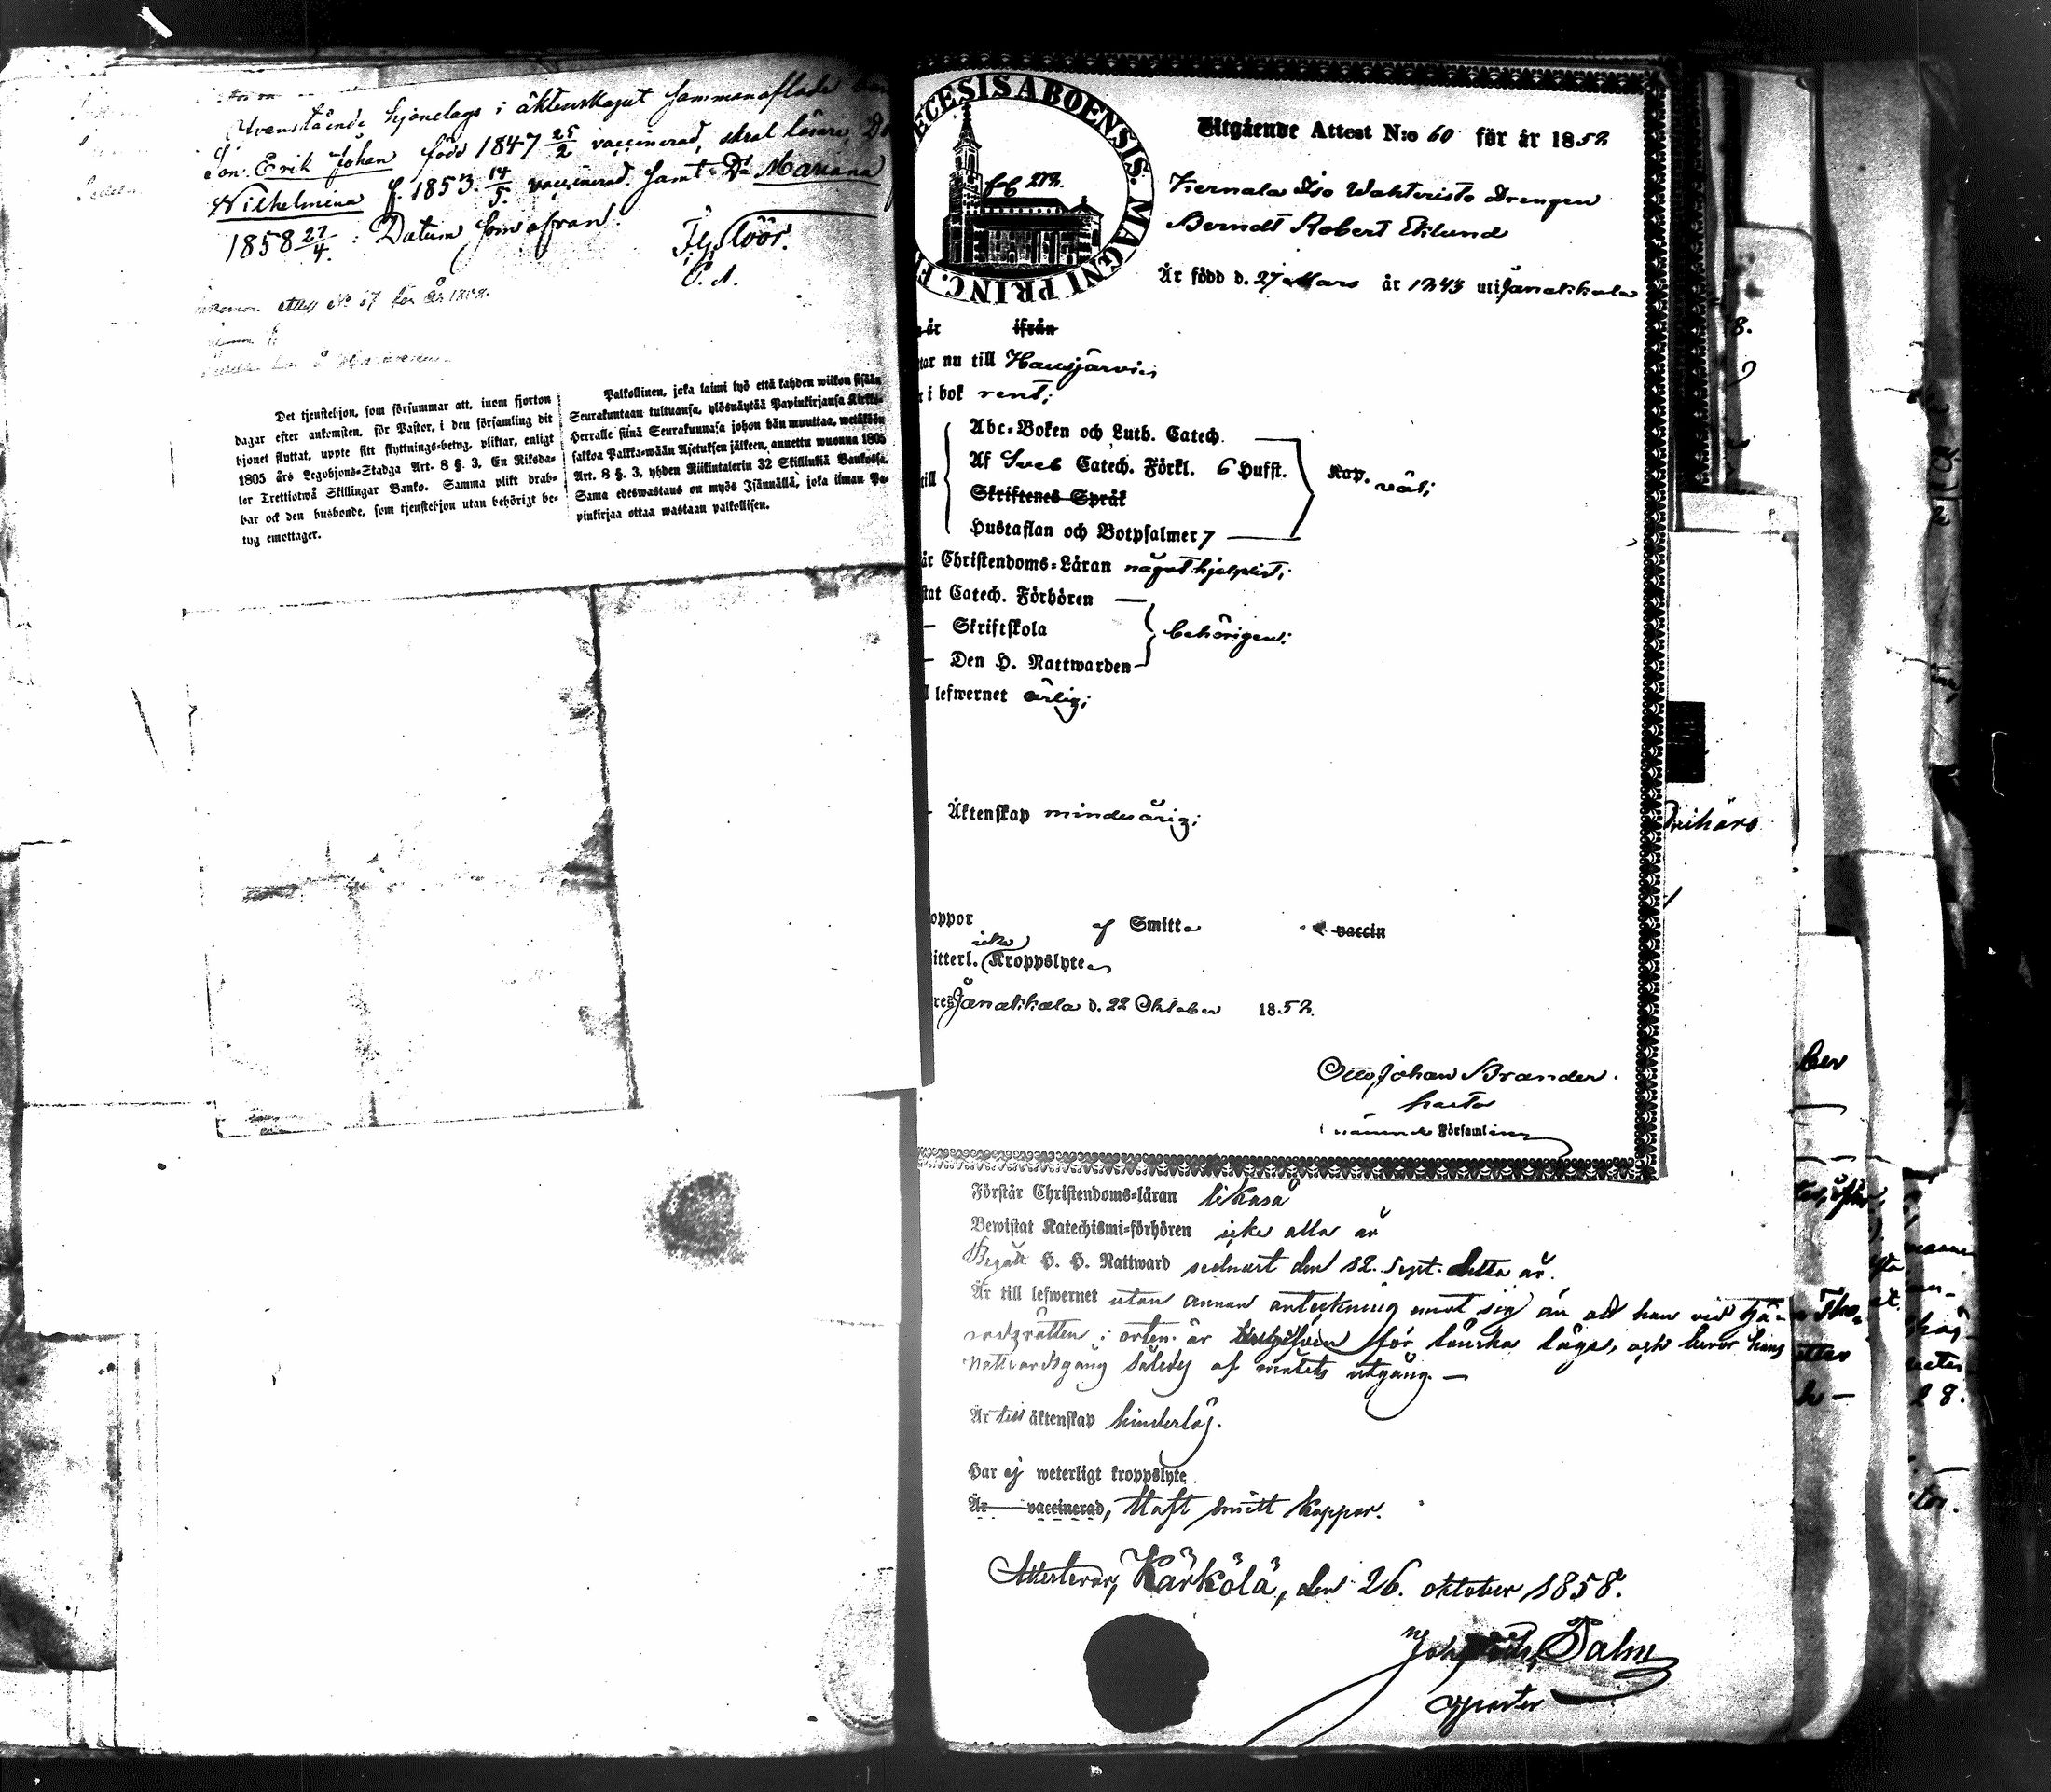 Ofvanstående hjonelags i äktenskapet sammanaflade
Son Erik Johan född 1847 25/2 vaccinerad, skral läsare,
Wilhelmina f. 1853 14/5 vaccinerad samt Dr Mariana
1858 27/4. Datum som ofvan.
C. A.
attest No 57 för år 1858.
Det tjenstehjon, som försummar att, inom fjorton
dagar efter ankomsten, för Pastor, i den församling dit
hjonet flyttat, uppte sitt flyttnings-betyg, pliktar, enligt
1805 års Legohjons-Stadga Art. 8 §. 3, En Riksda-
ler Trettiotwå Skillingar Banko. Samma plikt drab-
bar ock den husbonde, som tjenstehjon utan behörigt be-
tyg emottager.
Palkollinen, joka laimi lyö että kahden wiikon sisään
Seurakuntaan tultuansa, ylösnäytää Papinkirjansa Kirkko-
Herralle siinä Seurakunnasa johon hän muuttaa, wetäköön
sakkoa Palkka-wään Asetuksen jälkeen, annettu wuonna 1805
Art. 8 §. 3, yhden Riikintalerin 32 Skillinkiä Bankossa.
Sama edeswastaus on myös Isännällä, joka ilman Pa-
pinkirjaa ottaa wastaan palkollisen.
ECESIS ABOENSIS. MAGNI PRINC. F
Utgående Attest N:o 60 för år 1852
Kernala Iso Wahteristo Drengen
Berndt Robert Eklund
Är född d. 27 Mars år 1843 uti Janakkala
år ifrån
tar nu till Hausjärvi;
i bok rent;
Abc-Boken och Luth. Catech.
till Af Sveb Catech. Förkl. 6 Hufst. Kap. väl;
Skriftenes Språk
Hustaflan och Botpsalmer 7
år Christendoms-Läran något hjelpligt;
stat Catech. Förhören
Skriftskola behörigen;
Den H. Nattwarden
lefwernet ärlig;
Äktenskap minderårig;
oppor af Smitta vaccin
itterl. icke Kroppslyte
res Janakkala d. 22 Oktober 1852.
Otto Johan Brander.
Församling
Förstår Christendoms-läran likaså
Bewistat Katechismi-förhören icke alla år
Begått H. H. Nattward sednast den 12. Sept. detta år.
Är till lefwernet utan annan anteckning emot sig än att han vid Hä-
radsrätten i orten är för lånska lägs, och beror hans
nattvardsgång således af målets utgång. —
Är till äktenskap hinderlös.
Har ej weterligt kroppslyte.
Är vaccinerad, haft smitt koppor.
Attesterar, Kärkölä, den 26. oktober 1858.
Palm
Prihäro